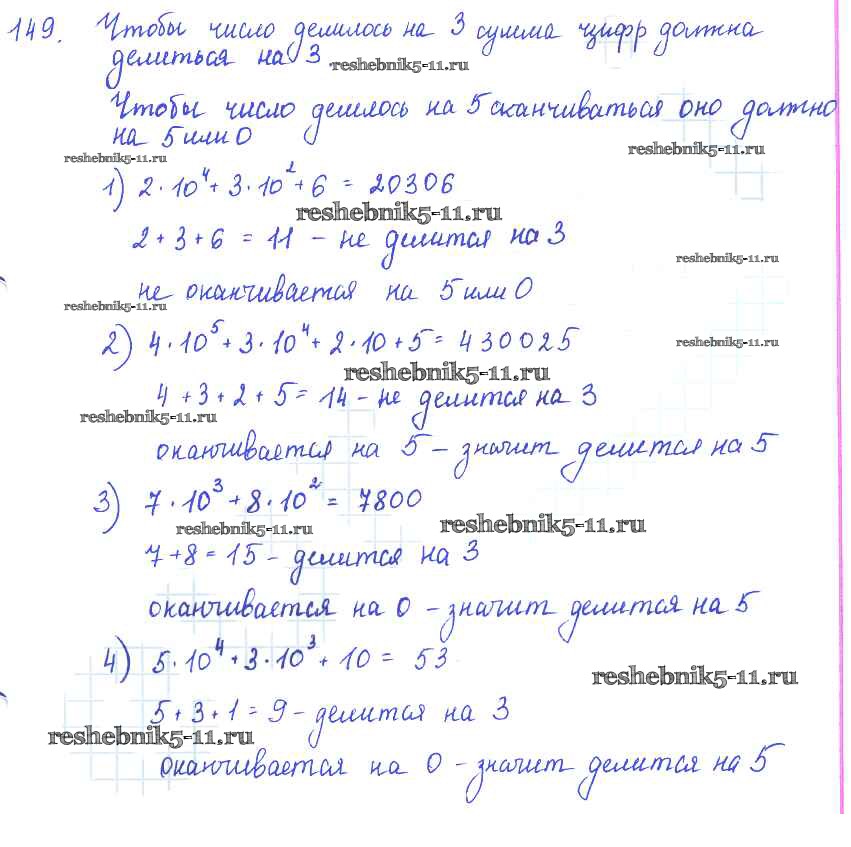 149. Чтобы число делилось на 3 сумма цифр должна
делиться на 3.
reshebnik5-11.ru
Чтобы число делилось на 5 оканчиваться оно должно
на 5 или 0
reshebnik5-11.ru
reshebnik5-11.ru
1) 2·10⁴+3·10²+6 = 20306
reshebnik5-11.ru
2+3+6 = 11 – не делится на 3
reshebnik5-11.ru
не оканчивается на 5 или 0
reshebnik5-11.ru
2) 4·10⁵+3·10⁴+2·10+5= 430025
reshebnik5-11.ru
reshebnik5-11.ru
4+3+2+5=14 – не делится на 3
reshebnik5-11.ru
оканчивается на 5 – значит делится на 5
3) 7·10³+8·10² = 7800
reshebnik5-11.ru
reshebnik5-11.ru
7+8=15 – делится на 3
оканчивается на 0 – значит делится на 5
4) 5·10⁴+3·10³+10 = 53
reshebnik5-11.ru
5+3+1=9 – делится на 3
reshebnik5-11.ru
оканчивается на 0 – значит делится на 5